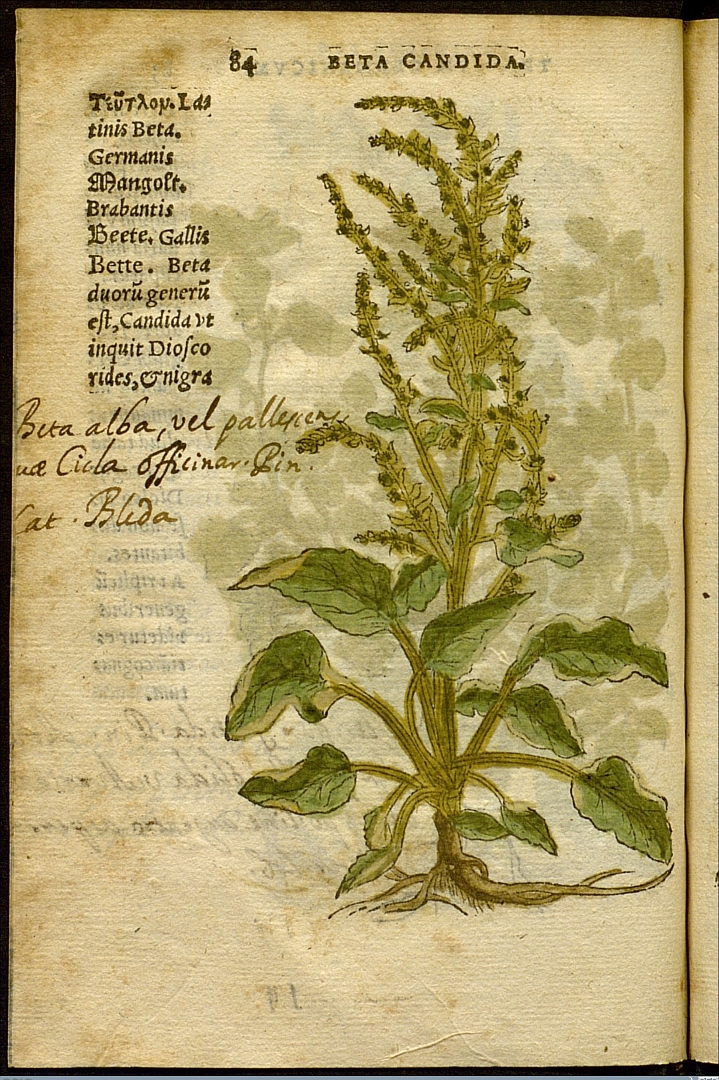 84 BETA CANDIDA.
Τεῦτλον. La-
tinis Beta.
Germanis
Mangolt.
Brabantis
Beete. Gallis
Bette. Beta
duorũ generũ
est, Candida vt
inquit Diosco
rides, & nigra
Beta alba, vel pallescens
uæ Cicla officinar. Pin.
Cat. Bleda